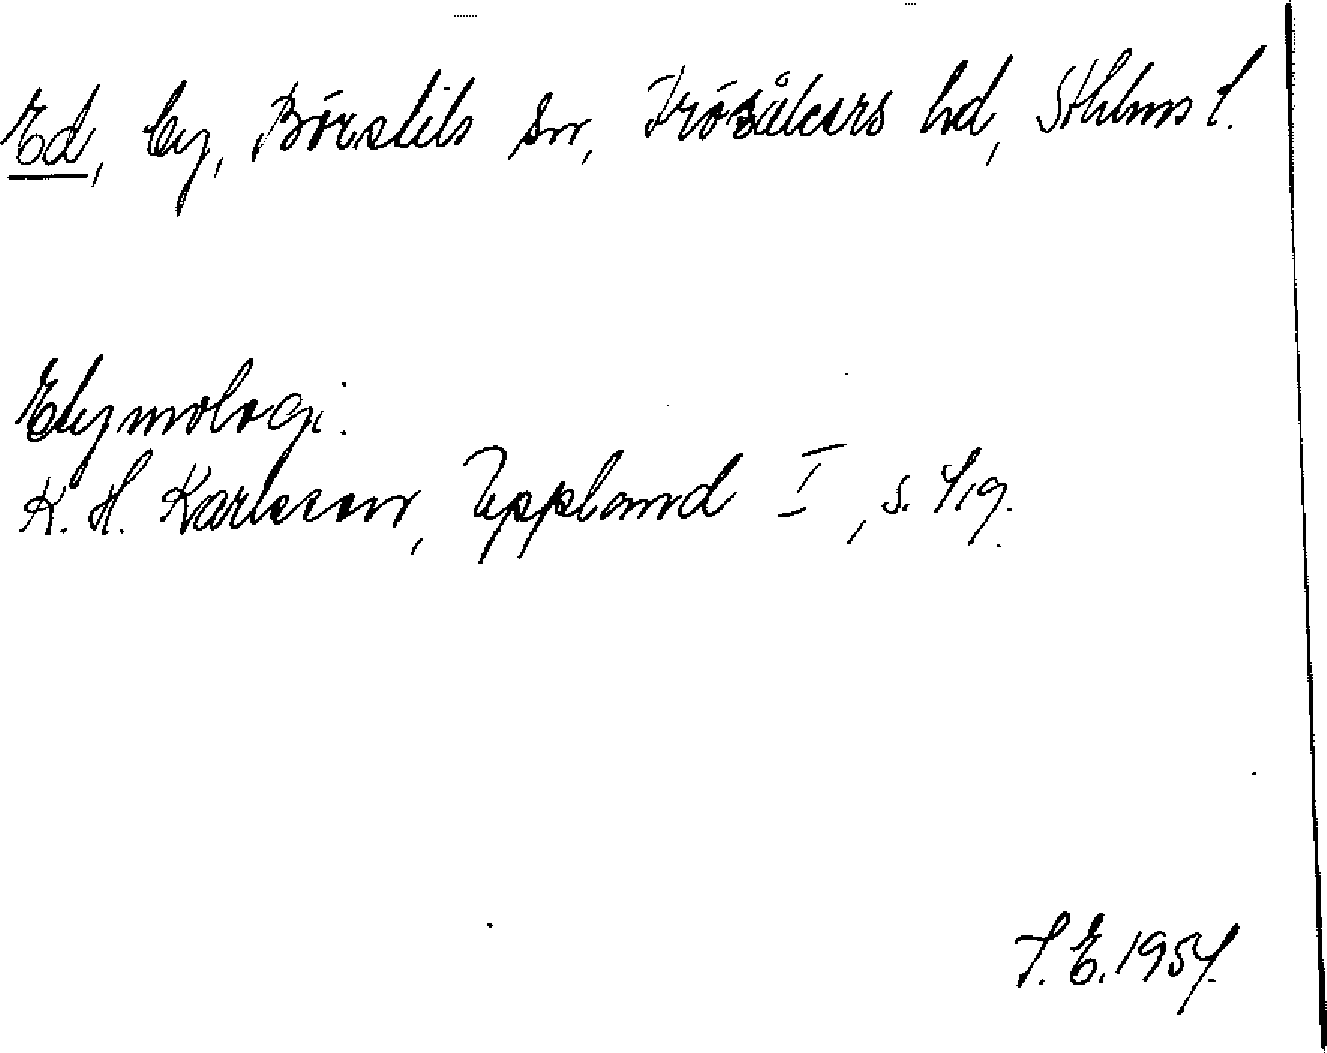 Ed, by, Börstils sn, Frösåkers hd, Sthlms l.
Etymologi.
K. H. Karlsson, Uppland I, s. 419.
T. E. 1954.